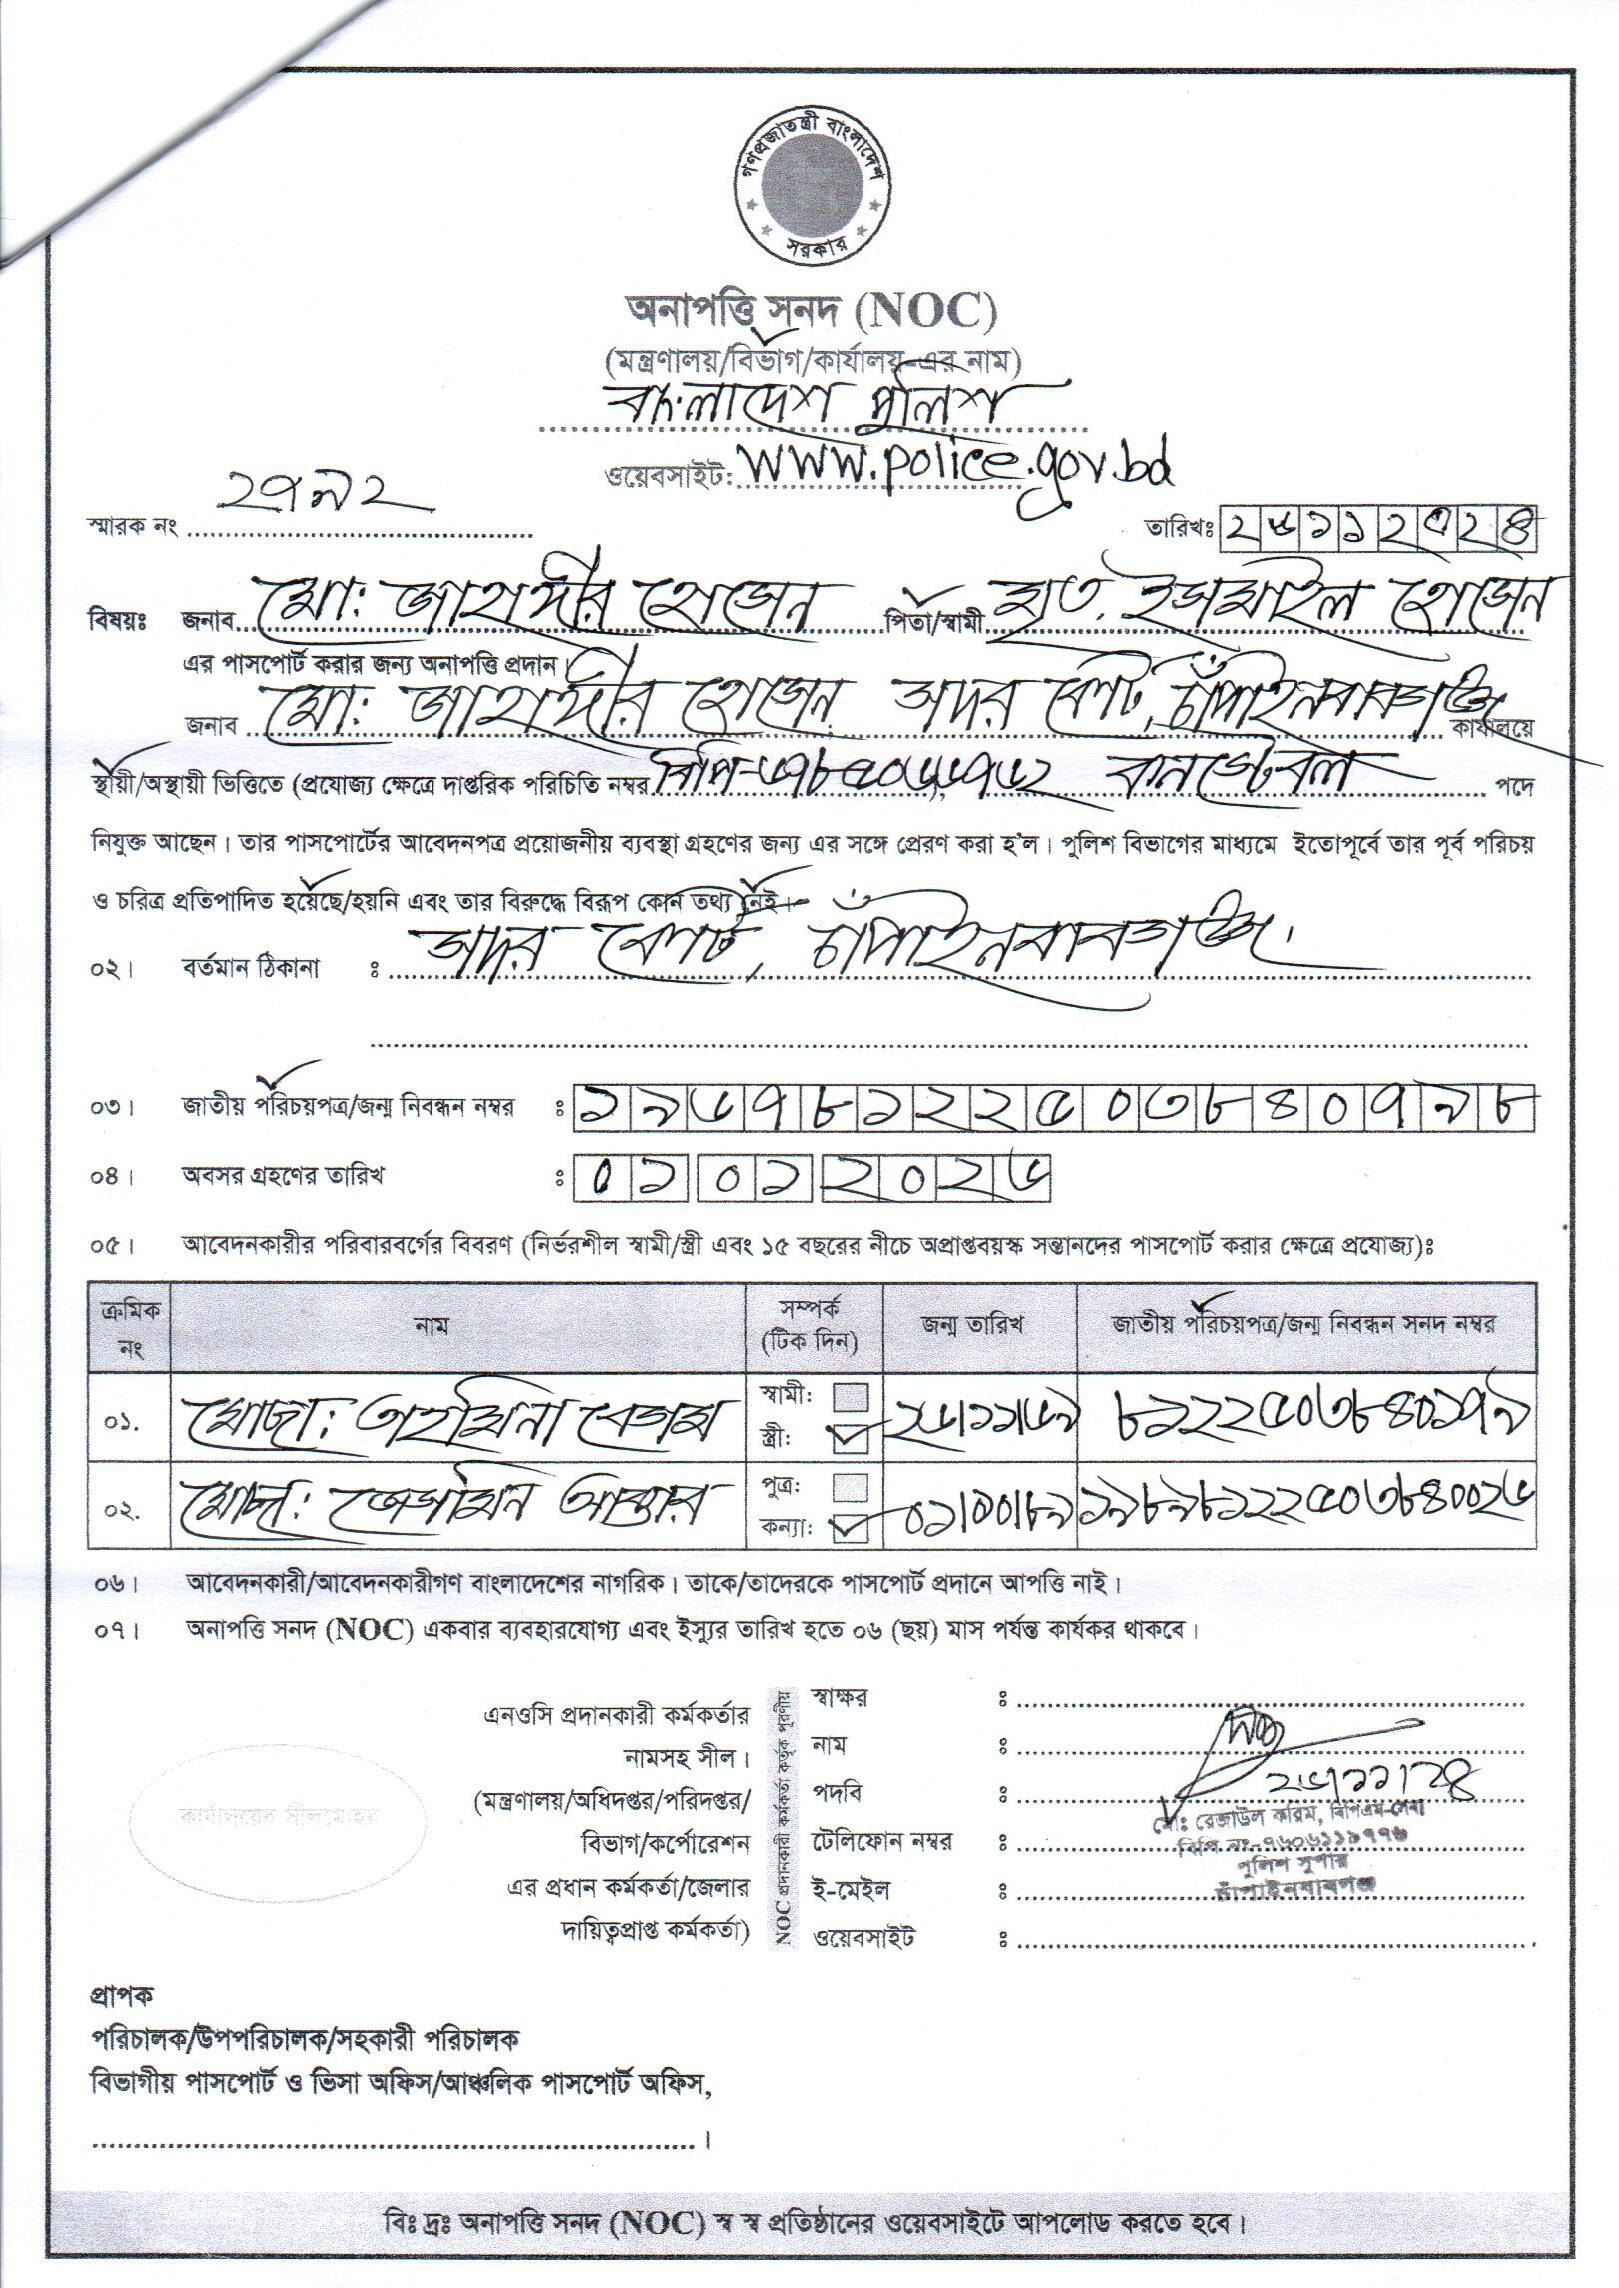 গণপ্রজাতন্ত্রী বাংলাদেশ
সরকার
অনাপত্তি সনদ (NOC)
(মন্ত্রণালয়/বিভাগ/কার্যালয়-এর নাম)
বাংলাদেশ পুলিশ
ওয়েবসাইট: www.police.gov.bd
স্মারক নং ২৭৯২ তারিখঃ
বিষয়ঃ জনাব মো: জাহাঙ্গীর হোসেন পিতা/স্বামী মৃত. ইসমাইল হোসেন
এর পাসপোর্ট করার জন্য অনাপত্তি প্রদান।
জনাব মো: জাহাঙ্গীর হোসেন, সদর কোর্ট, চাঁপাইনবাবগঞ্জ কার্যালয়ে
স্থায়ী/অস্থায়ী ভিত্তিতে (প্রযোজ্য ক্ষেত্রে দাপ্তরিক পরিচিতি নম্বর বিপি- ), কনস্টেবল পদে
নিযুক্ত আছেন। তার পাসপোর্টের আবেদনপত্র প্রয়োজনীয় ব্যবস্থা গ্রহণের জন্য এর সঙ্গে প্রেরণ করা হ'ল। পুলিশ বিভাগের মাধ্যমে ইতোপূর্বে তার পূর্ব পরিচয়
ও চরিত্র প্রতিপাদিত হয়েছে/হয়নি এবং তার বিরুদ্ধে বিরূপ কোন তথ্য নেই।
০২। বর্তমান ঠিকানা : সদর কোর্ট, চাঁপাইনবাবগঞ্জ।
০৩। জাতীয় পরিচয়পত্র/জন্ম নিবন্ধন নম্বর : ১৯৬৭৮১২২৫০৩৮৪০৭৯৮
০৪। অবসর গ্রহণের তারিখ : ০১ ০১ ২০২৬
০৫। আবেদনকারীর পরিবারবর্গের বিবরণ (নির্ভরশীল স্বামী/স্ত্রী এবং ১৫ বছরের নীচে অপ্রাপ্তবয়স্ক সন্তানদের পাসপোর্ট করার ক্ষেত্রে প্রযোজ্য)ঃ
ক্রমিক নং নাম সম্পর্ক (টিক দিন) জন্ম তারিখ জাতীয় পরিচয়পত্র/জন্ম নিবন্ধন সনদ নম্বর
০১. মোছা: তাহমিনা বেগম স্বামী: স্ত্রী: ৮১২২৫০৩৮৪০১৭৯
০২. মোছা: জেসমিন আক্তার পুত্র: কন্যা: ১৯৮৯৮১২২৫০৩৮৪০০২৬
০৬। আবেদনকারী/আবেদনকারীগণ বাংলাদেশের নাগরিক। তাকে/তাদেরকে পাসপোর্ট প্রদানে আপত্তি নাই।
০৭। অনাপত্তি সনদ (NOC) একবার ব্যবহারযোগ্য এবং ইস্যুর তারিখ হতে ০৬ (ছয়) মাস পর্যন্ত কার্যকর থাকবে।
কার্যালয়ের সীলমোহর
এনওসি প্রদানকারী কর্মকর্তার
নামসহ সীল।
(মন্ত্রণালয়/অধিদপ্তর/পরিদপ্তর/
বিভাগ/কর্পোরেশন
এর প্রধান কর্মকর্তা/জেলার
দায়িত্বপ্রাপ্ত কর্মকর্তা)
NOC প্রদানকারী কর্মকর্তা কর্তৃক পূরণীয়
স্বাক্ষর :
নাম :
পদবি :
টেলিফোন নম্বর :
ই-মেইল :
ওয়েবসাইট :
২৬/১১/২৪
মোঃ রেজাউল করিম, বিপিএম-সেবা
বিপি নং-৭৬০৬১১৯৭৭৬
পুলিশ সুপার
চাঁপাইনবাবগঞ্জ
প্রাপক
পরিচালক/উপপরিচালক/সহকারী পরিচালক
বিভাগীয় পাসপোর্ট ও ভিসা অফিস/আঞ্চলিক পাসপোর্ট অফিস,
।
বিঃ দ্রঃ অনাপত্তি সনদ (NOC) স্ব স্ব প্রতিষ্ঠানের ওয়েবসাইটে আপলোড করতে হবে।